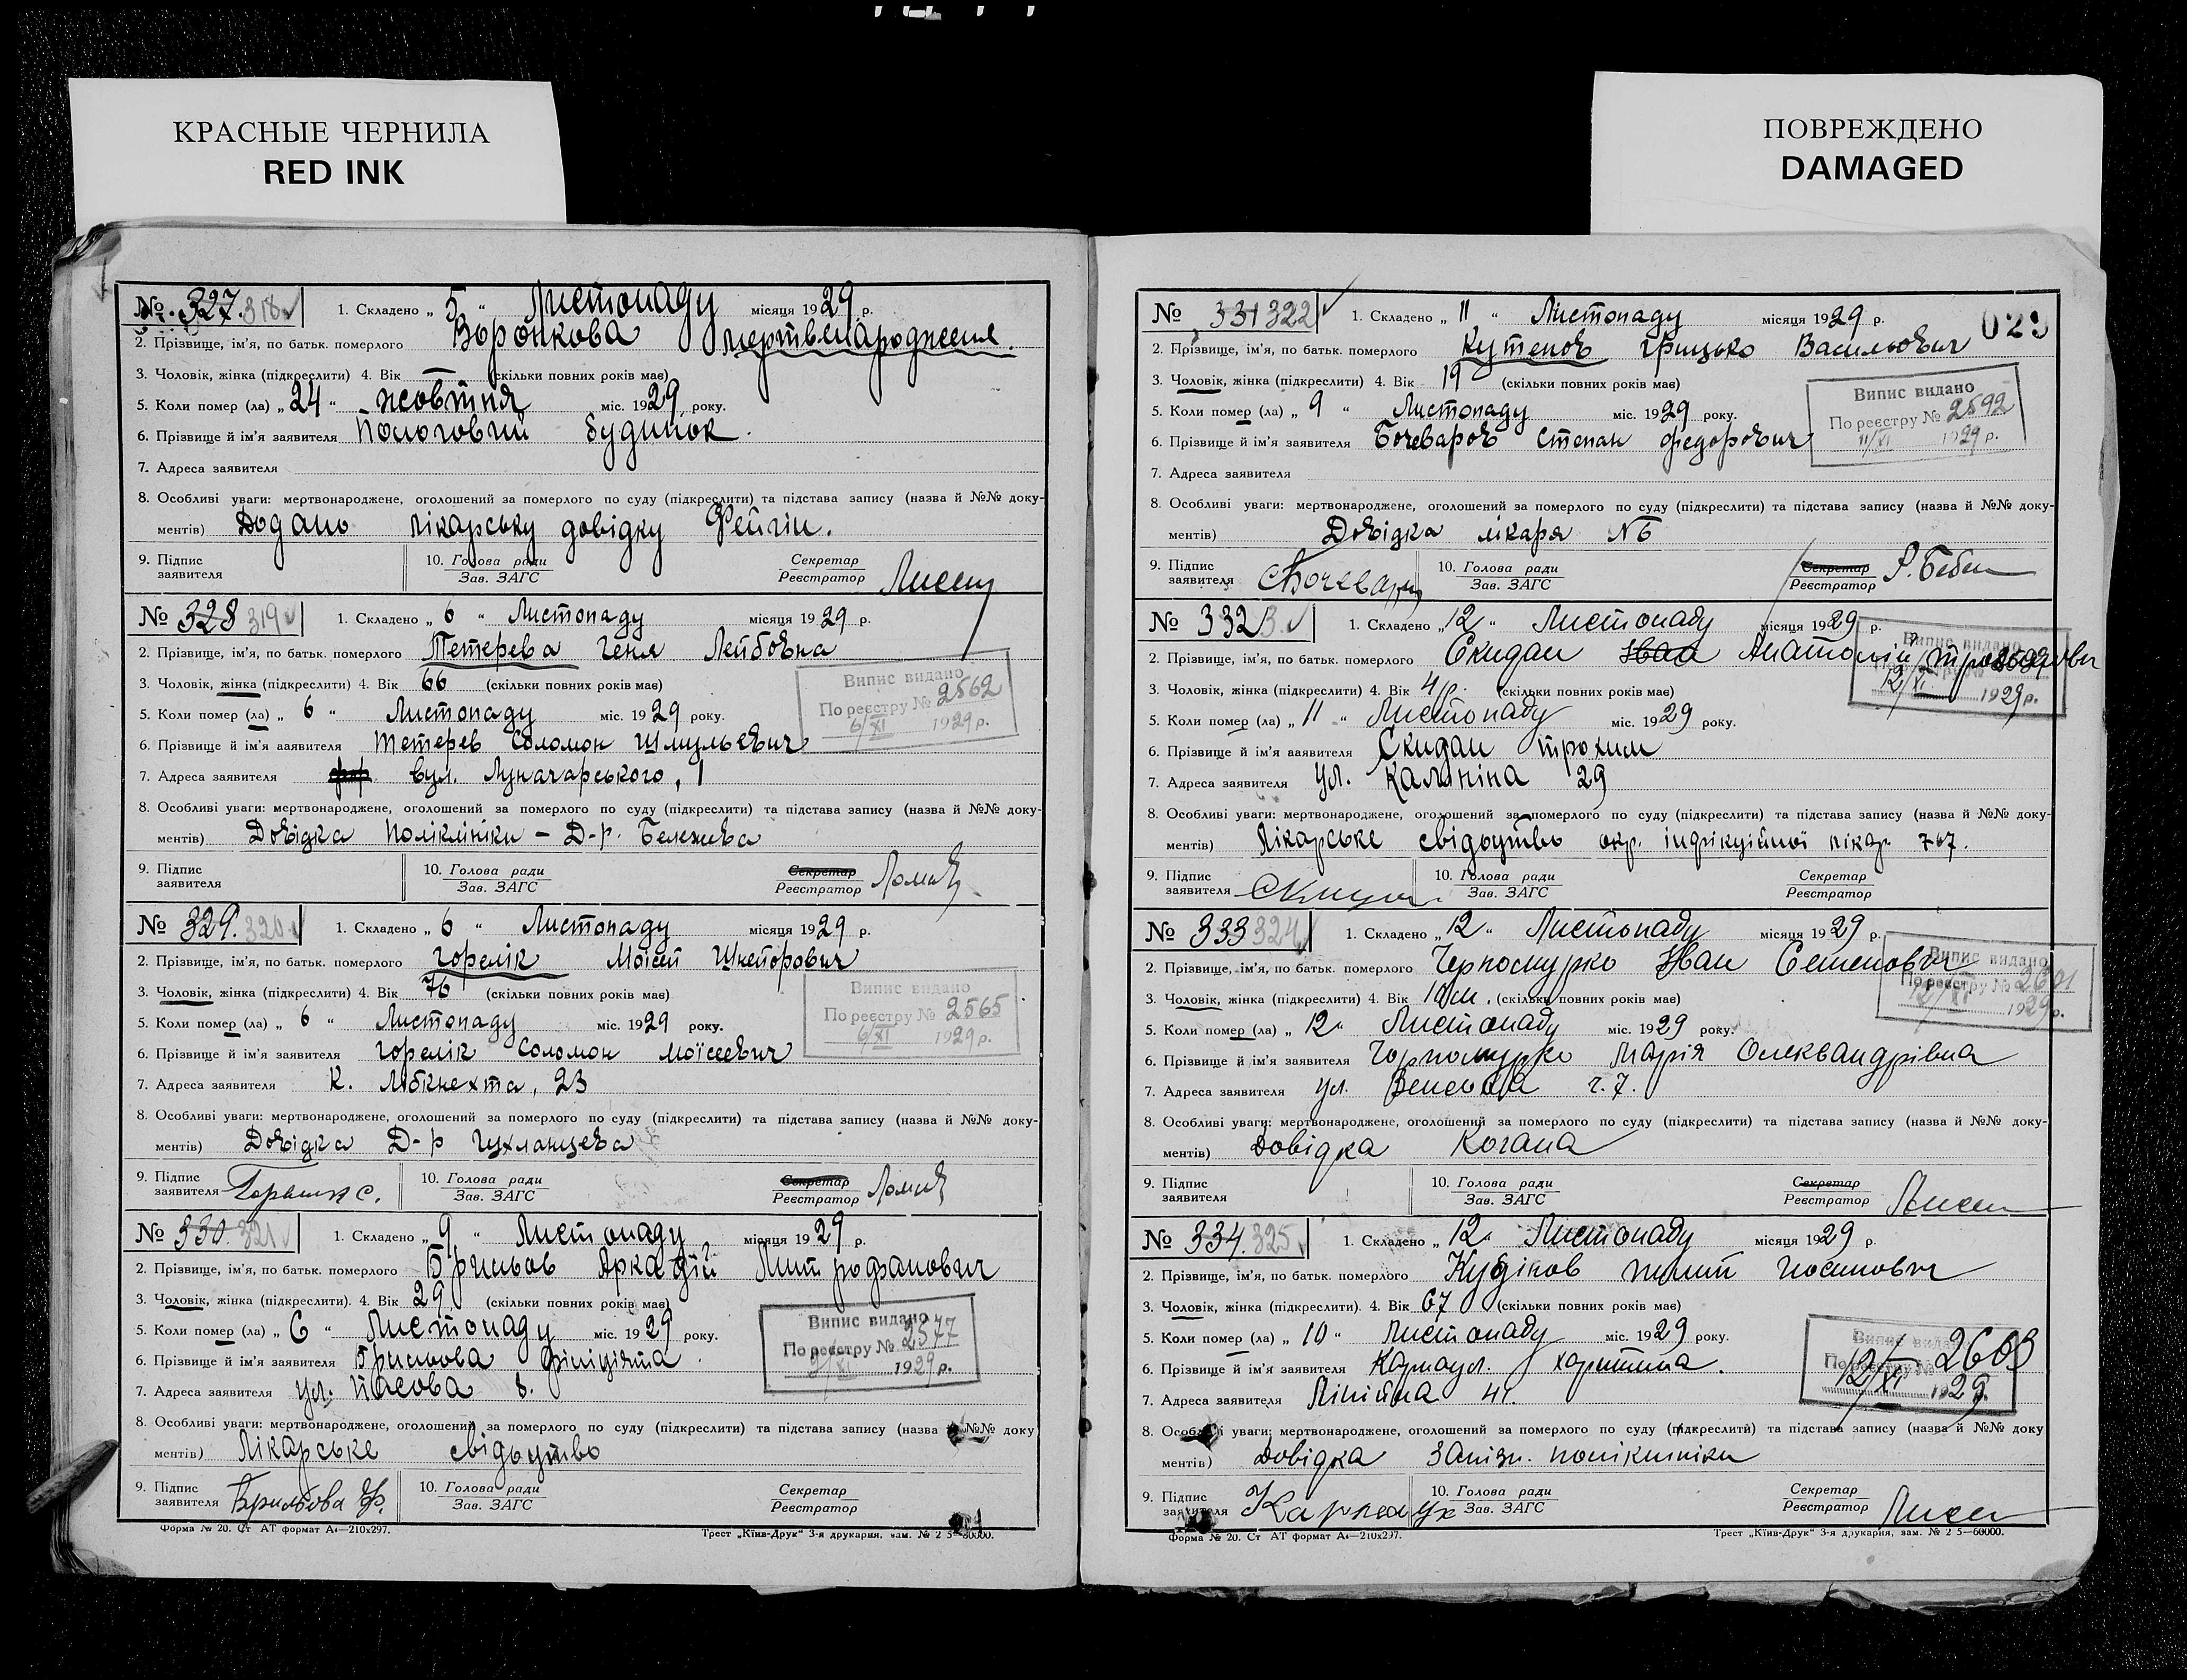 КРАСНЫЕ ЧЕРНИЛА
RED INK
ПОВРЕЖДЕНО
DAMAGED
№ 327. 318 1. Складено „ 5 “ Листопаду місяця 1929 р.
2. Прізвище, ім'я, по батьк. померлого Воронкова мертвенароджения.
3. Чоловік, жінка (підкреслити) 4. Вік — (скільки повних років має)
5. Коли помер (ла) „ 24 “ жовтня міс. 1929 року.
6. Прізвище й ім'я заявителя Пологовий будинок.
7. Адреса заявителя
8. Особливі уваги: мертвонароджене, оголошений за померлого по суду (підкреслити) та підстава запису (назва й №№ доку-
ментів) Додано лікарську довідку Фейгін.
9. Підпис заявителя 10. Голова ради Зав. ЗАГС Секретар Реєстратор
№ 328 319 1. Складено „ 6 “ Листопаду місяця 1929 р.
2. Прізвище, ім'я, по батьк. померлого Тетерева Геня Лейбовна
3. Чоловік, жінка (підкреслити) 4. Вік 66 (скільки повних років має)
5. Коли помер (ла) „ 6 “ Листопаду міс. 1929 року.
Випис видано
По реєстру № 2562
6/XI 1929 р.
6. Прізвище й ім'я заявителя Тетерев Соломон Шмульевич
7. Адреса заявителя вул. Луначарського, 1
8. Особливі уваги: мертвонароджене, оголошений за померлого по суду (підкреслити) та підстава запису (назва й №№ доку-
ментів) Довідка поліклініки – Д-р.
9. Підпис заявителя 10. Голова ради Зав. ЗАГС Секретар Реєстратор
№ 329. 320 1. Складено „ 6 “ Листопаду місяця 1929 р.
2. Прізвище, ім'я, по батьк. померлого Горелік Моісей Шнеорович
3. Чоловік, жінка (підкреслити) 4. Вік 76 (скільки повних років має)
5. Коли помер (ла) „ 6 “ Листопаду міс. 1929 року.
Випис видано
По реєстру № 2565
6/XI 1929 р.
6. Прізвище й ім'я заявителя Горелік Соломон Моїсеевич
7. Адреса заявителя К. Лібкнехта, 23
8. Особливі уваги: мертвонароджене, оголошений за померлого по суду (підкреслити) та підстава запису (назва й №№ доку-
ментів) Довідка Д-р
9. Підпис заявителя 10. Голова ради Зав. ЗАГС Секретар Реєстратор
№ 330 321 1. Складено „ 9 “ Листопаду місяця 1929 р.
2. Прізвище, ім'я, по батьк. померлого Брильов Аркадій Митрофанович
3. Чоловік, жінка (підкреслити). 4. Вік 29 (скільки повних років має)
5. Коли помер (ла) „ 6 “ Листопаду міс. 1929 року.
Випис видано
По реєстру № 2577
1929 р.
6. Прізвище й ім'я заявителя Брильова
7. Адреса заявителя ул. 8.
8. Особливі уваги: мертвонароджене, оголошений за померлого по суду (підкреслити) та підстава запису (назва №№ доку
ментів) Лікарське свідоцтво
9. Підпис заявителя Брильова Ф. 10. Голова ради Зав. ЗАГС Секретар Реєстратор
Форма № 20. Ст АТ формат А4—210х297. Трест „Київ-Друк“ 3-я друкарня, зам. № 2 5—60000.
№ 331 322 1. Складено „ 11 “ Листопаду місяця 1929 р.
029
2. Прізвище, ім'я, по батьк. померлого Кутепов Грицько Васильович
3. Чоловік, жінка (підкреслити) 4. Вік 19 (скільки повних років має)
5. Коли помер (ла) „ 9 “ Листопаду міс. 1929 року.
Випис видано
По реєстру № 2592
11/XI 1929 р.
6. Прізвище й ім'я заявителя Бочеваров Степан Федорович
7. Адреса заявителя
8. Особливі уваги: мертвонароджене, оголошений за померлого по суду (підкреслити) та підстава запису (назва й №№ доку-
ментів) Довідка лікаря
9. Підпис заявителя 10. Голова ради Зав. ЗАГС Секретар Реєстратор
№ 332 3 1. Складено „ 12 “ Листопаду місяця 1929 р.
2. Прізвище, ім'я, по батьк. померлого Скидан Іван Анатолій
3. Чоловік, жінка (підкреслити) 4. Вік 4 р. (скільки повних років має)
Випис видано
12/XI 1929 р.
5. Коли помер (ла) „ 11 “ Листопаду міс. 1929 року.
6. Прізвище й ім'я заявителя Скидан Трохим
7. Адреса заявителя ул. Калініна 29
8. Особливі уваги: мертвонароджене, оголошений за померлого по суду (підкреслити) та підстава запису (назва й №№ доку-
ментів) Лікарське свідоцтво окр. інфікційної лікар. 767.
9. Підпис заявителя 10. Голова ради Зав. ЗАГС Секретар Реєстратор
№ 333 324 1. Складено „ 12 “ Листопаду місяця 1929 р.
2. Прізвище, ім'я, по батьк. померлого Чорномурко Іван Семенович
Випис видано
По реєстру № 2601
12/XI 1929 р.
3. Чоловік, жінка (підкреслити) 4. Вік 10 м. (скільки повних років має)
5. Коли помер (ла) „ 12 “ Листопаду міс. 1929 року.
6. Прізвище й ім'я заявителя Чорномурко Марія Олександрівна
7. Адреса заявителя ул. ч. 7.
8. Особливі уваги: мертвонароджене, оголошений за померлого по суду (підкреслити) та підстава запису (назва й №№ доку-
ментів) Довідка Когана
9. Підпис заявителя 10. Голова ради Зав. ЗАГС Секретар Реєстратор
№ 334. 325 1. Складено „ 12 “ Листопаду місяця 1929 р.
2. Прізвище, ім'я, по батьк. померлого Посипович
3. Чоловік, жінка (підкреслити). 4. Вік 67 (скільки повних років має)
5. Коли помер (ла) „ 10 “ Листопаду міс. 1929 року.
Випис видано
2603
12/XI 1929
6. Прізвище й ім'я заявителя Харитина.
7. Адреса заявителя Лінійна 41.
8. Особливі уваги: мертвонароджене, оголошений за померлого по суду (підкреслити) та підстава запису (назва й №№ доку
ментів) Довідка Залізн. поліклініки
9. Підпис заявителя 10. Голова ради Зав. ЗАГС Секретар Реєстратор
Форма № 20. Ст АТ формат А4—210х297. Трест „Київ-Друк“ 3-я друкарня, зам. № 2 5—60000.